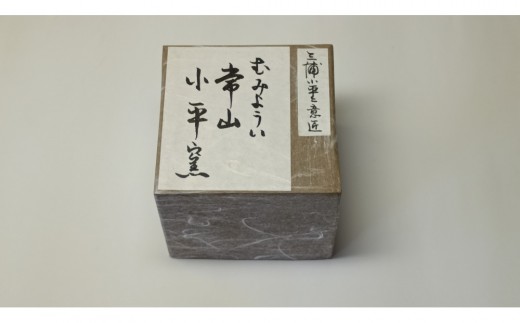 三浦小平二意匠
むみようい
常山
小平窯